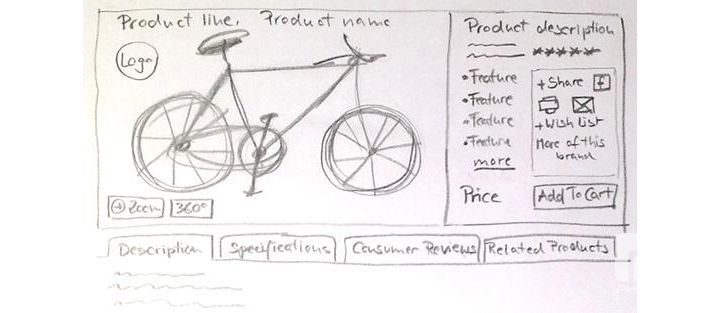 Product line, Product name
Logo
Zoom
360°
Product description
*****
• Feature
• Feature
• Feature
• Feature
more
+Share f
+Wish List
More of this
brand
Price
Add To Cart
Description
Specifications
Consumer Reviews
Related Products